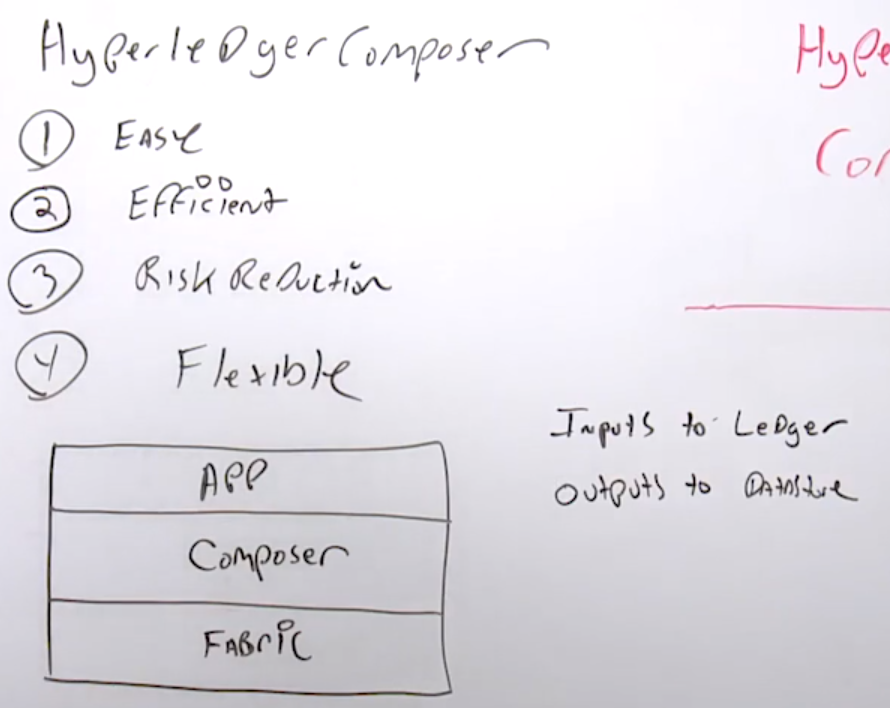 Hyperledger Composer
1 Easy
2 Efficient
3 Risk Reduction
4 Flexible
App
Composer
Fabric
Hype
Con
Inputs to Ledger
Outputs to Datastore